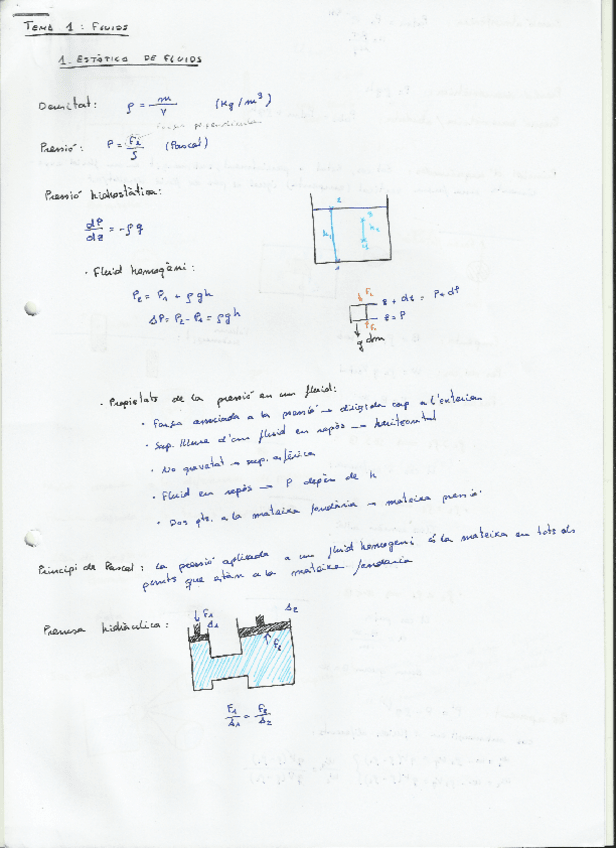 TEMA 1: FLUIDS
1. ESTÀTICA DE FLUIDS
Densitat: ρ = m/V (kg/m³)
força perpendicular
Pressió: P = F⊥/S (Pascal)
Pressió hidrostàtica:
dP/dz = -ρg
· Fluid homogèni:
P₂ = P₁ + ρgh
ΔP = P₂ - P₁ = ρgh
z + dz = P + dP
z = P
g dm
· Propietats de la pressió en un fluid:
· Força associada a la pressió → dirigida cap a l'exterior
· Sup. lliure d'un fluid en repòs → horitzontal
· No gravetat → sup. esfèrica
· Fluid en repòs → P depèn de h
· Dos pts. a la mateixa fondària → mateixa pressió
Principi de Pascal: la pressió aplicada a un fluid homogeni és la mateixa en tots els
punts que estàn a la mateixa fondària
Premsa hidràulica:
F₁ S₁ S₂
F₂
F₁/S₁ = F₂/S₂